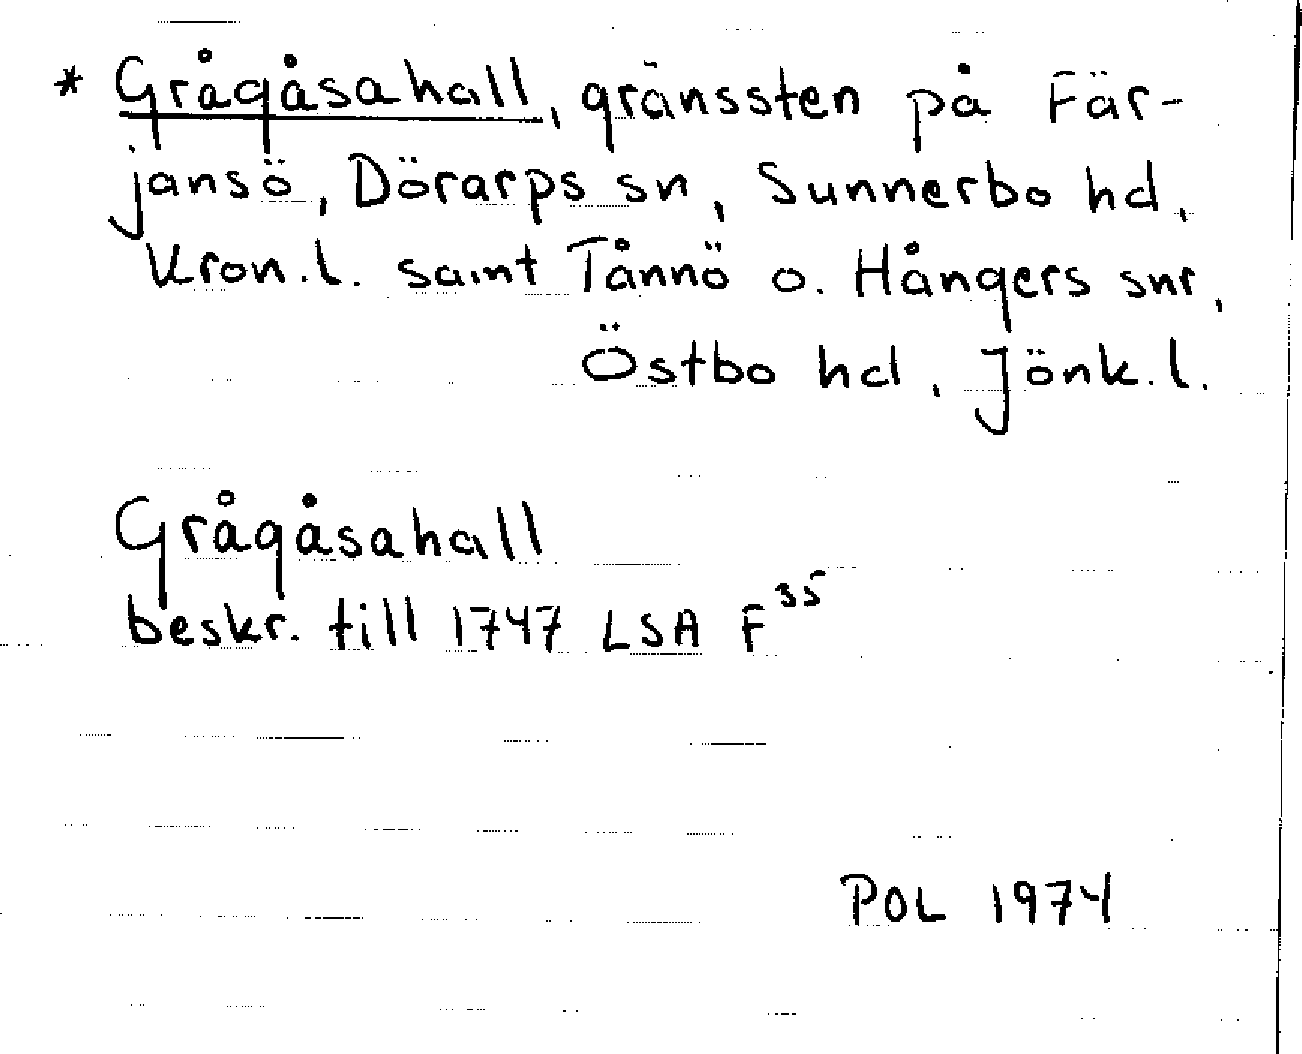 * Grågåsahall, gränssten på Fär-
jansö, Dörarps sn, Sunnerbo hd,
Kron.l. samt Tånnö o. Hångers snr,
Östbo hd, Jönk.l.
Grågåsahall
beskr. till 1747 LSA F³⁵
POL 1974